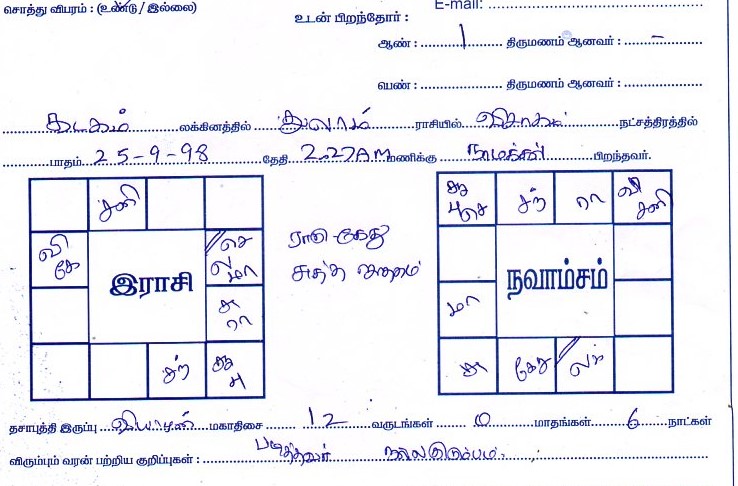 சொத்து விபரம் : (உண்டு / இல்லை)
E-mail:
உடன் பிறந்தோர் :
ஆண் : 1 திருமணம் ஆனவர் : -
பெண் : திருமணம் ஆனவர் :
கடகம் லக்கினத்தில் துலாம் ராசியில் விசாகம் நட்சத்திரத்தில்
பாதம் 25-9-98 தேதி 2.27A.M மணிக்கு நாமக்கல் பிறந்தவர்.
சனி
வி கே
செ ல மா
இராசி
சு ரா
சந் பு சு
ராகு கேது
சுத்த ஜாதகம்
சந் ரா வி சனி
நவாம்சம்
மா
சு கேது ல
தசாபுத்தி இருப்பு வியாழன் மகாதிசை 12 வருடங்கள் 0 மாதங்கள் 6 நாட்கள்
விரும்பும் வரன் பற்றிய குறிப்புகள் : படித்தவர் நல்ல குடும்பம்.